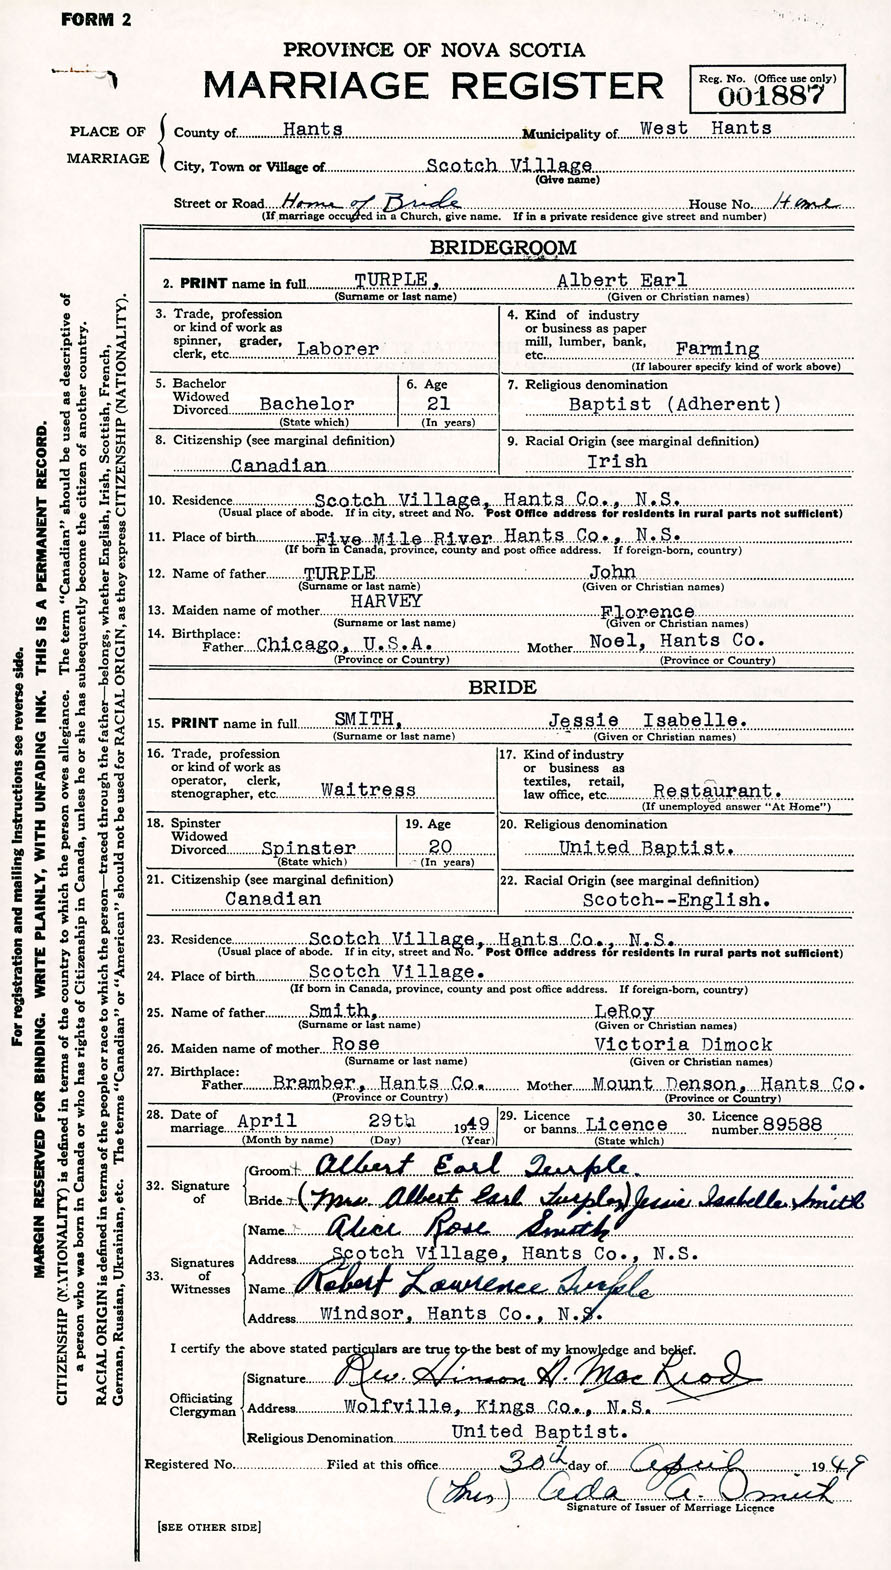 FORM 2
PROVINCE OF NOVA SCOTIA
MARRIAGE REGISTER
Reg. No. (Office use only)
001887
PLACE OF MARRIAGE
County of Hants Municipality of West Hants
City, Town or Village of Scotch Village
(Give name)
Street or Road Home of Bride House No. Home
(If marriage occurred in a Church, give name. If in a private residence give street and number)
BRIDEGROOM
2. PRINT name in full TURPLE, Albert Earl
(Surname or last name) (Given or Christian names)
3. Trade, profession
or kind of work as
spinner, grader,
clerk, etc. Laborer
4. Kind of industry
or business as paper
mill, lumber, bank,
etc. Farming
(If labourer specify kind of work above)
5. Bachelor
Widowed
Divorced Bachelor
(State which)
6. Age
21
(In years)
7. Religious denomination
Baptist (Adherent)
8. Citizenship (see marginal definition)
Canadian
9. Racial Origin (see marginal definition)
Irish
10. Residence Scotch Village, Hants Co., N.S.
(Usual place of abode. If in city, street and No. Post Office address for residents in rural parts not sufficient)
11. Place of birth Five Mile River Hants Co., N.S.
(If born in Canada, province, county and post office address. If foreign-born, country)
12. Name of father TURPLE John
(Surname or last name) (Given or Christian names)
13. Maiden name of mother HARVEY Florence
(Surname or last name) (Given or Christian names)
14. Birthplace:
Father Chicago, U.S.A. Mother Noel, Hants Co.
(Province or Country) (Province or Country)
BRIDE
15. PRINT name in full SMITH, Jessie Isabelle.
(Surname or last name) (Given or Christian names)
16. Trade, profession
or kind of work as
operator, clerk,
stenographer, etc. Waitress
17. Kind of industry
or business as
textiles, retail,
law office, etc. Restaurant.
(If unemployed answer "At Home")
18. Spinster
Widowed
Divorced Spinster
(State which)
19. Age
20
(In years)
20. Religious denomination
United Baptist.
21. Citizenship (see marginal definition)
Canadian
22. Racial Origin (see marginal definition)
Scotch--English.
23. Residence Scotch Village, Hants Co., N.S.
(Usual place of abode. If in city, street and No. Post Office address for residents in rural parts not sufficient)
24. Place of birth Scotch Village.
(If born in Canada, province, county and post office address. If foreign-born, country)
25. Name of father Smith, LeRoy
(Surname or last name) (Given or Christian names)
26. Maiden name of mother Rose Victoria Dimock
(Surname or last name) (Given or Christian names)
27. Birthplace:
Father Bramber, Hants Co. Mother Mount Denson, Hants Co.
(Province or Country) (Province or Country)
28. Date of
marriage April 29th 1949
(Month by name) (Day) (Year)
29. Licence
or banns Licence
(State which)
30. Licence
number 89588
32. Signature of
Groom Albert Earl Turple
Bride (Mrs. Albert Earl Turple) Jessie Isabelle Smith
33. Signatures of Witnesses
Name Alice Rose Smith
Address Scotch Village, Hants Co., N.S.
Name Robert Lawrence Turple
Address Windsor, Hants Co., N.S.
I certify the above stated particulars are true to the best of my knowledge and belief.
Officiating Clergyman
Signature Rev. Hinson A. MacLeod
Address Wolfville, Kings Co., N.S.
Religious Denomination United Baptist.
Registered No. Filed at this office 30th day of April 1949
(Mrs) Ada A. Smith
Signature of Issuer of Marriage Licence
[SEE OTHER SIDE]
For registration and mailing instructions see reverse side.
MARGIN RESERVED FOR BINDING. WRITE PLAINLY, WITH UNFADING INK. THIS IS A PERMANENT RECORD.
CITIZENSHIP (NATIONALITY) is defined in terms of the country to which the person owes allegiance. The term "Canadian" should be used as descriptive of
a person who was born in Canada or who has rights of Citizenship in Canada, unless he or she has subsequently become the citizen of another country.
RACIAL ORIGIN is defined in terms of the people or race to which the person—traced through the father—belongs, whether English, Irish, Scottish, French,
German, Russian, Ukrainian, etc. The terms "Canadian" or "American" should not be used for RACIAL ORIGIN, as they express CITIZENSHIP (NATIONALITY).